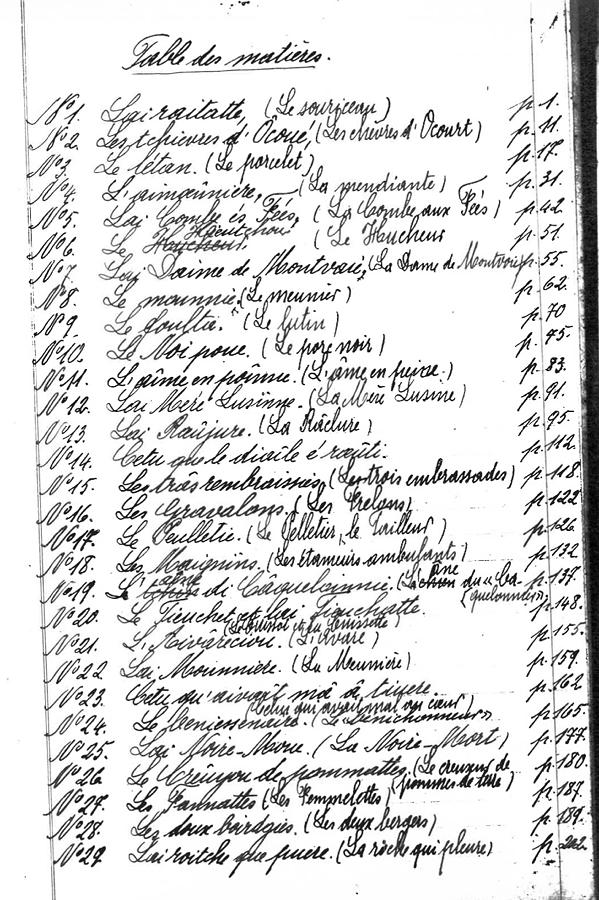 Table des matières.
N° 1. Lai raitatte, (Le souriceau) p. 1.
N° 2. Les tchievres d'Ôcoue, (Les chèvres d'Ocourt) p. 11.
N° 3 Le létan. (Le porcelet) p. 17.
N° 4. L'aimoûnière, (La mendiante) p. 31.
N° 5. Lai Combe és Fées, (La Combe aux Fées) p. 42
N° 6. Le Hautchou (Le Hucheur p. 51.
N° 7 Lai Daime de Montvaie, (La Dame de Montvoie) p. 55.
N° 8. Le mounnie. (Le meunier) p. 62.
N° 9. Le foultä. (Le lutin) p. 70
N° 10. Le Noi poue. (Le porc noir) p. 75.
N° 11. L'aîme en poinne. (L'âme en peine.) p. 83.
N° 12. Lai Mère Lusinne. (La Mère Lusine) p. 91.
N° 13. Lai Raûjure. (La Râclure) p. 95.
N° 14. Cetu que le diaile é raûti. p. 112.
N° 15. Les trâs rembraissies, (Les trois embrassades) p. 118.
N° 16. Les Gravalons. (Les Frelons) p. 122
N° 17. Le Peulletie. (Le Pelletier, le Tailleur) p. 126
N° 18. Les Maignins. (Les étameurs ambulants) p. 132
N° 19. L'aîne di Câquelainnie. (L'âne du "Ca- p. 137.
quelonnier")
N° 20. Le Tieuchet et lai Tieuchatte. p. 148.
N° 21. L'Aivâreciou. (L'Avare) p. 155.
N° 22 Lai Mounniere. (La Meunière) p. 159.
N° 23. Cetu qu'aivait mâ â tiuere. p. 162
(Celui qui avait mal au cœur)
N° 24. Le Feniessenieire. (Le "Bénichonneur") p. 165.
N° 25. Lai Noire-Moue. (La Noire-Mort) p. 177.
N° 26 Le Creûyou de pommattes. (Le creuseur de p. 180.
pommes de terre)
N° 27. Les Fannattes (Les Femmelettes) p. 187.
N° 28. Les doux bardgies. (Les deux bergers) p. 189.
N° 29 Lai roitche que puere. (La roche qui pleure) p. 202.